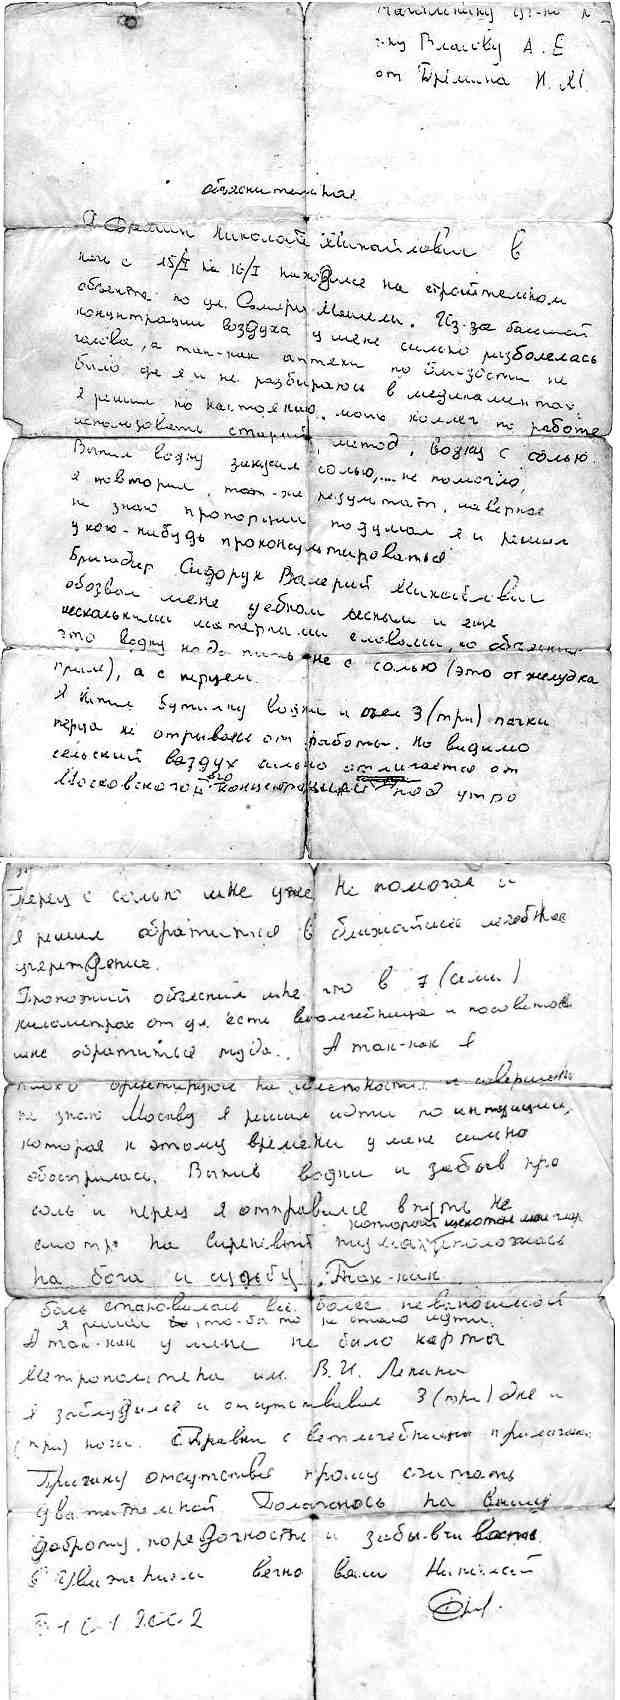 Начальнику
Власову А. Е
от Ерёмина Н. М.
объяснительная.
Я Ерёмин Николай Михайлович в
ночь с 15/I на 16/I находился на строительном
объекте по ул. Саморы Машела. Из-за большой
концитрации воздуха у меня сильно разболелась
голова, а так-как аптеки по близости не
было да я и не разбираюсь в медикаментах,
я решил по настоянию моих коллег по работе
использовать старый, метод, водку с солью.
Выпил водку закусил солью,... не помогло,
я повторил, тот-же результат, наверное
не знаю пропорции подумал я и решил
у кого-нибудь проконсультироваться
Бригадир Сидорук Валерий Михайлович
обозвал меня уебком лесным и ещё
несколькими матерными словами, но объяснил
что водку надо пить не с солью (это от желудка
прим), а с перцем.
Я выпил бутылку водки и съел 3 (три) пачки
перца не отрываясь от работы. Но видимо
сельский воздух сильно отличается от
Московского концентрацией под утро
Перец с солью мне уже не помогал и
я решил обратиться в ближайшее лечебное
учереждение.
Прохожий объяснил мне что в 7 (семи)
километрах от ул. есть ветлечебница и посоветовал
мне обратиться туда. А так-как я
плохо ориентируюсь на местности и совершенно
не знаю Москву я решил идти по интуиции,
которая к этому времени у меня сильно
обострилась. Выпив водки и забыв про
соль и перец я отправился в путь не
смотря на сиреневый туман который
положась
на бога и судьбу. Так-как
боль становилась всё более невыносимой
я решил что-бы то не стало идти.
А так-как у меня не было карты
Метрополитена им. В. И. Ленина
я заблудился и отсутствовал 3 (три) дня и
(три) ночи. Справки с ветлечебницы прилагаю.
Причину отсутствия прошу считать
уважительной Полагаюсь на вашу
доброту, порядочность и забывчивость.
С Уважением вечно ваш Николай